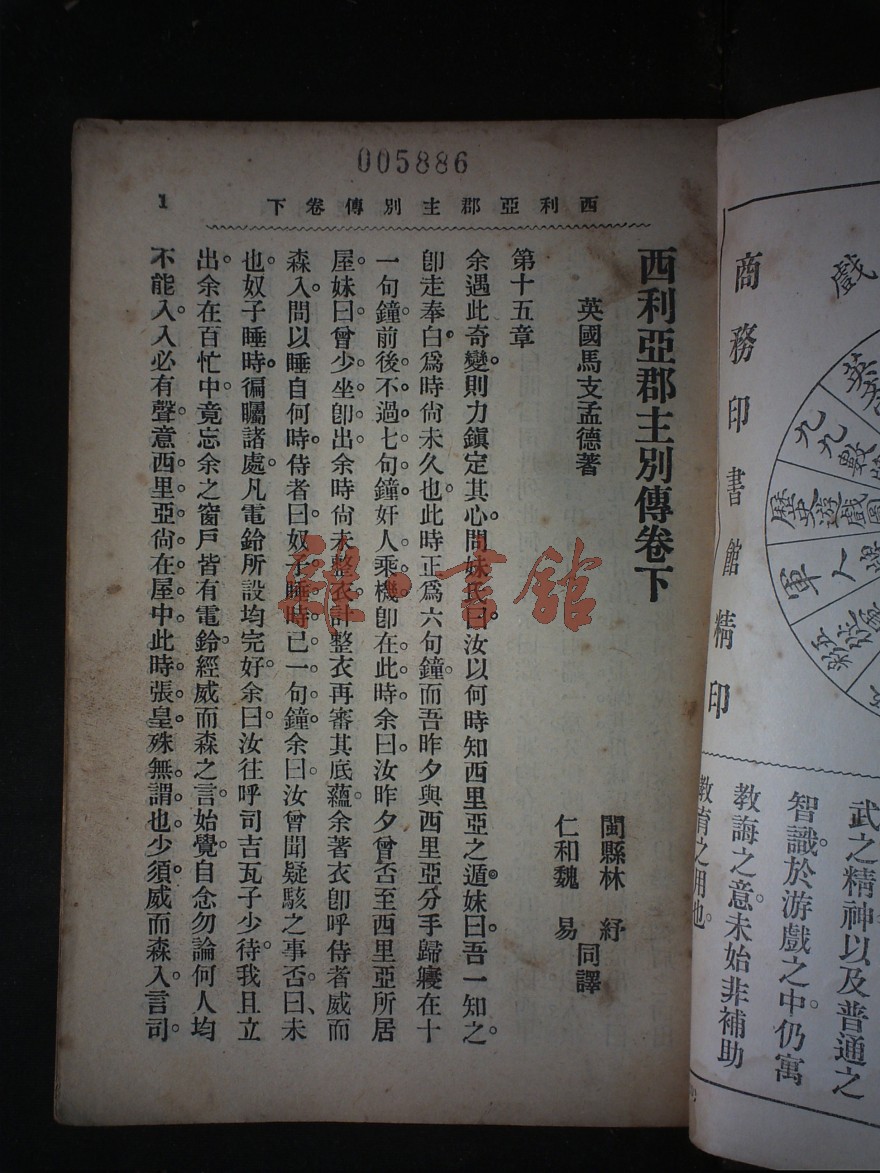 005886
西利亞郡主別傳卷下
1
西利亞郡主別傳卷下
英國馬支孟德著
閩縣林 紓
仁和魏 易
同譯
第十五章
余遇此奇變。則力鎮定其心。問妹氏曰。汝以何時知西里亞之遁。妹曰。吾一知之。
卽走奉白。爲時尙未久也。此時正爲六句鐘。而吾昨夕與西里亞分手歸寢。在十
一句鐘前後。不過七句鐘。奸人乘機。卽在此時。余曰。汝昨夕曾否至西里亞所居
屋。妹曰。曾少坐卽出。余時尙未整衣。計整衣再審其底蘊。余著衣。卽呼侍者威而
森入。問以睡自何時。侍者曰。奴子睡時。已一句鐘。余曰。汝曾聞疑駭之事否。曰、未
也。奴子睡時。徧矚諸處。凡電鈴所設均完好。余曰。汝往呼司吉瓦子少待。我且立
出。余在百忙中。竟忘余之窗戶皆有電鈴。經威而森之言。始覺。自念勿論何人。均
不能入。入必有聲。意西里亞尙在屋中。此時張皇。殊無謂也。少須。威而森入。言司
戲
商務印書館精印
九九數
歷史遊戲圖
軍人
武之精神以及普通之
智識於游戲之中仍寓
教誨之意未始非補助
教育之用也。